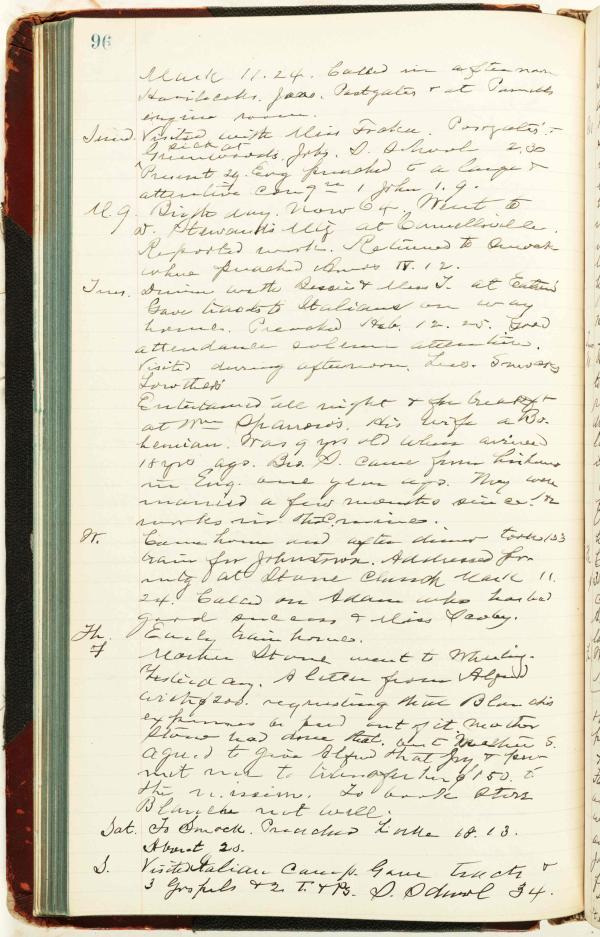 96
Mark 11.24. Called in afternoon
Jno. Postgates & at
engine room.
Visited with Miss Postgates' &
sick at
Greenwoods. Jobs. S. School 2.30
Present 29. Evg preached to a large &
attentive congre 1 John 1.9.
M. 9. Birth day. Now 64. Went to
D. Steward's Mtg at Connellsville.
Reported work. Returned to Smock
where preached 12.
Tues. Dinner with Bessie & Miss F. at
Gave tracts to Italians on way
home. Preached Heb. 12. 25. Good
attendance solemn attention.
Visited during afternoon,
Lowthers
Entertained all night & for breakft
at Wm Sparrow's. His wife a Bo-
hemian. Was 9 yrs old when arrived
18 yrs ago. Bro. S. came from
in Eng. one year ago. They were
married a few months since. He
works in the mine.
W. Came home and after dinner took 1:53
train for Johnstown. Addressed
at Stone Church Mark 11.
24. Called on Adam who has had
good success & Miss
Th. Early train home.
F Mother Stone went to Wheeling
Yesterday. A letter from Alfred
with $200. requesting that Blanche's
expenses be paid out of it. Mother
Stone had done that. but Mother S.
agreed to give Alfred that &
me to his $150. to
the mission. To
Blanche not well.
Sat. To Smock. Preached Luke 18. 13.
About 20.
S. Visited Italian Camp. Gave tracts &
3 Gospels & 2 T. & Ps. S. School 34.